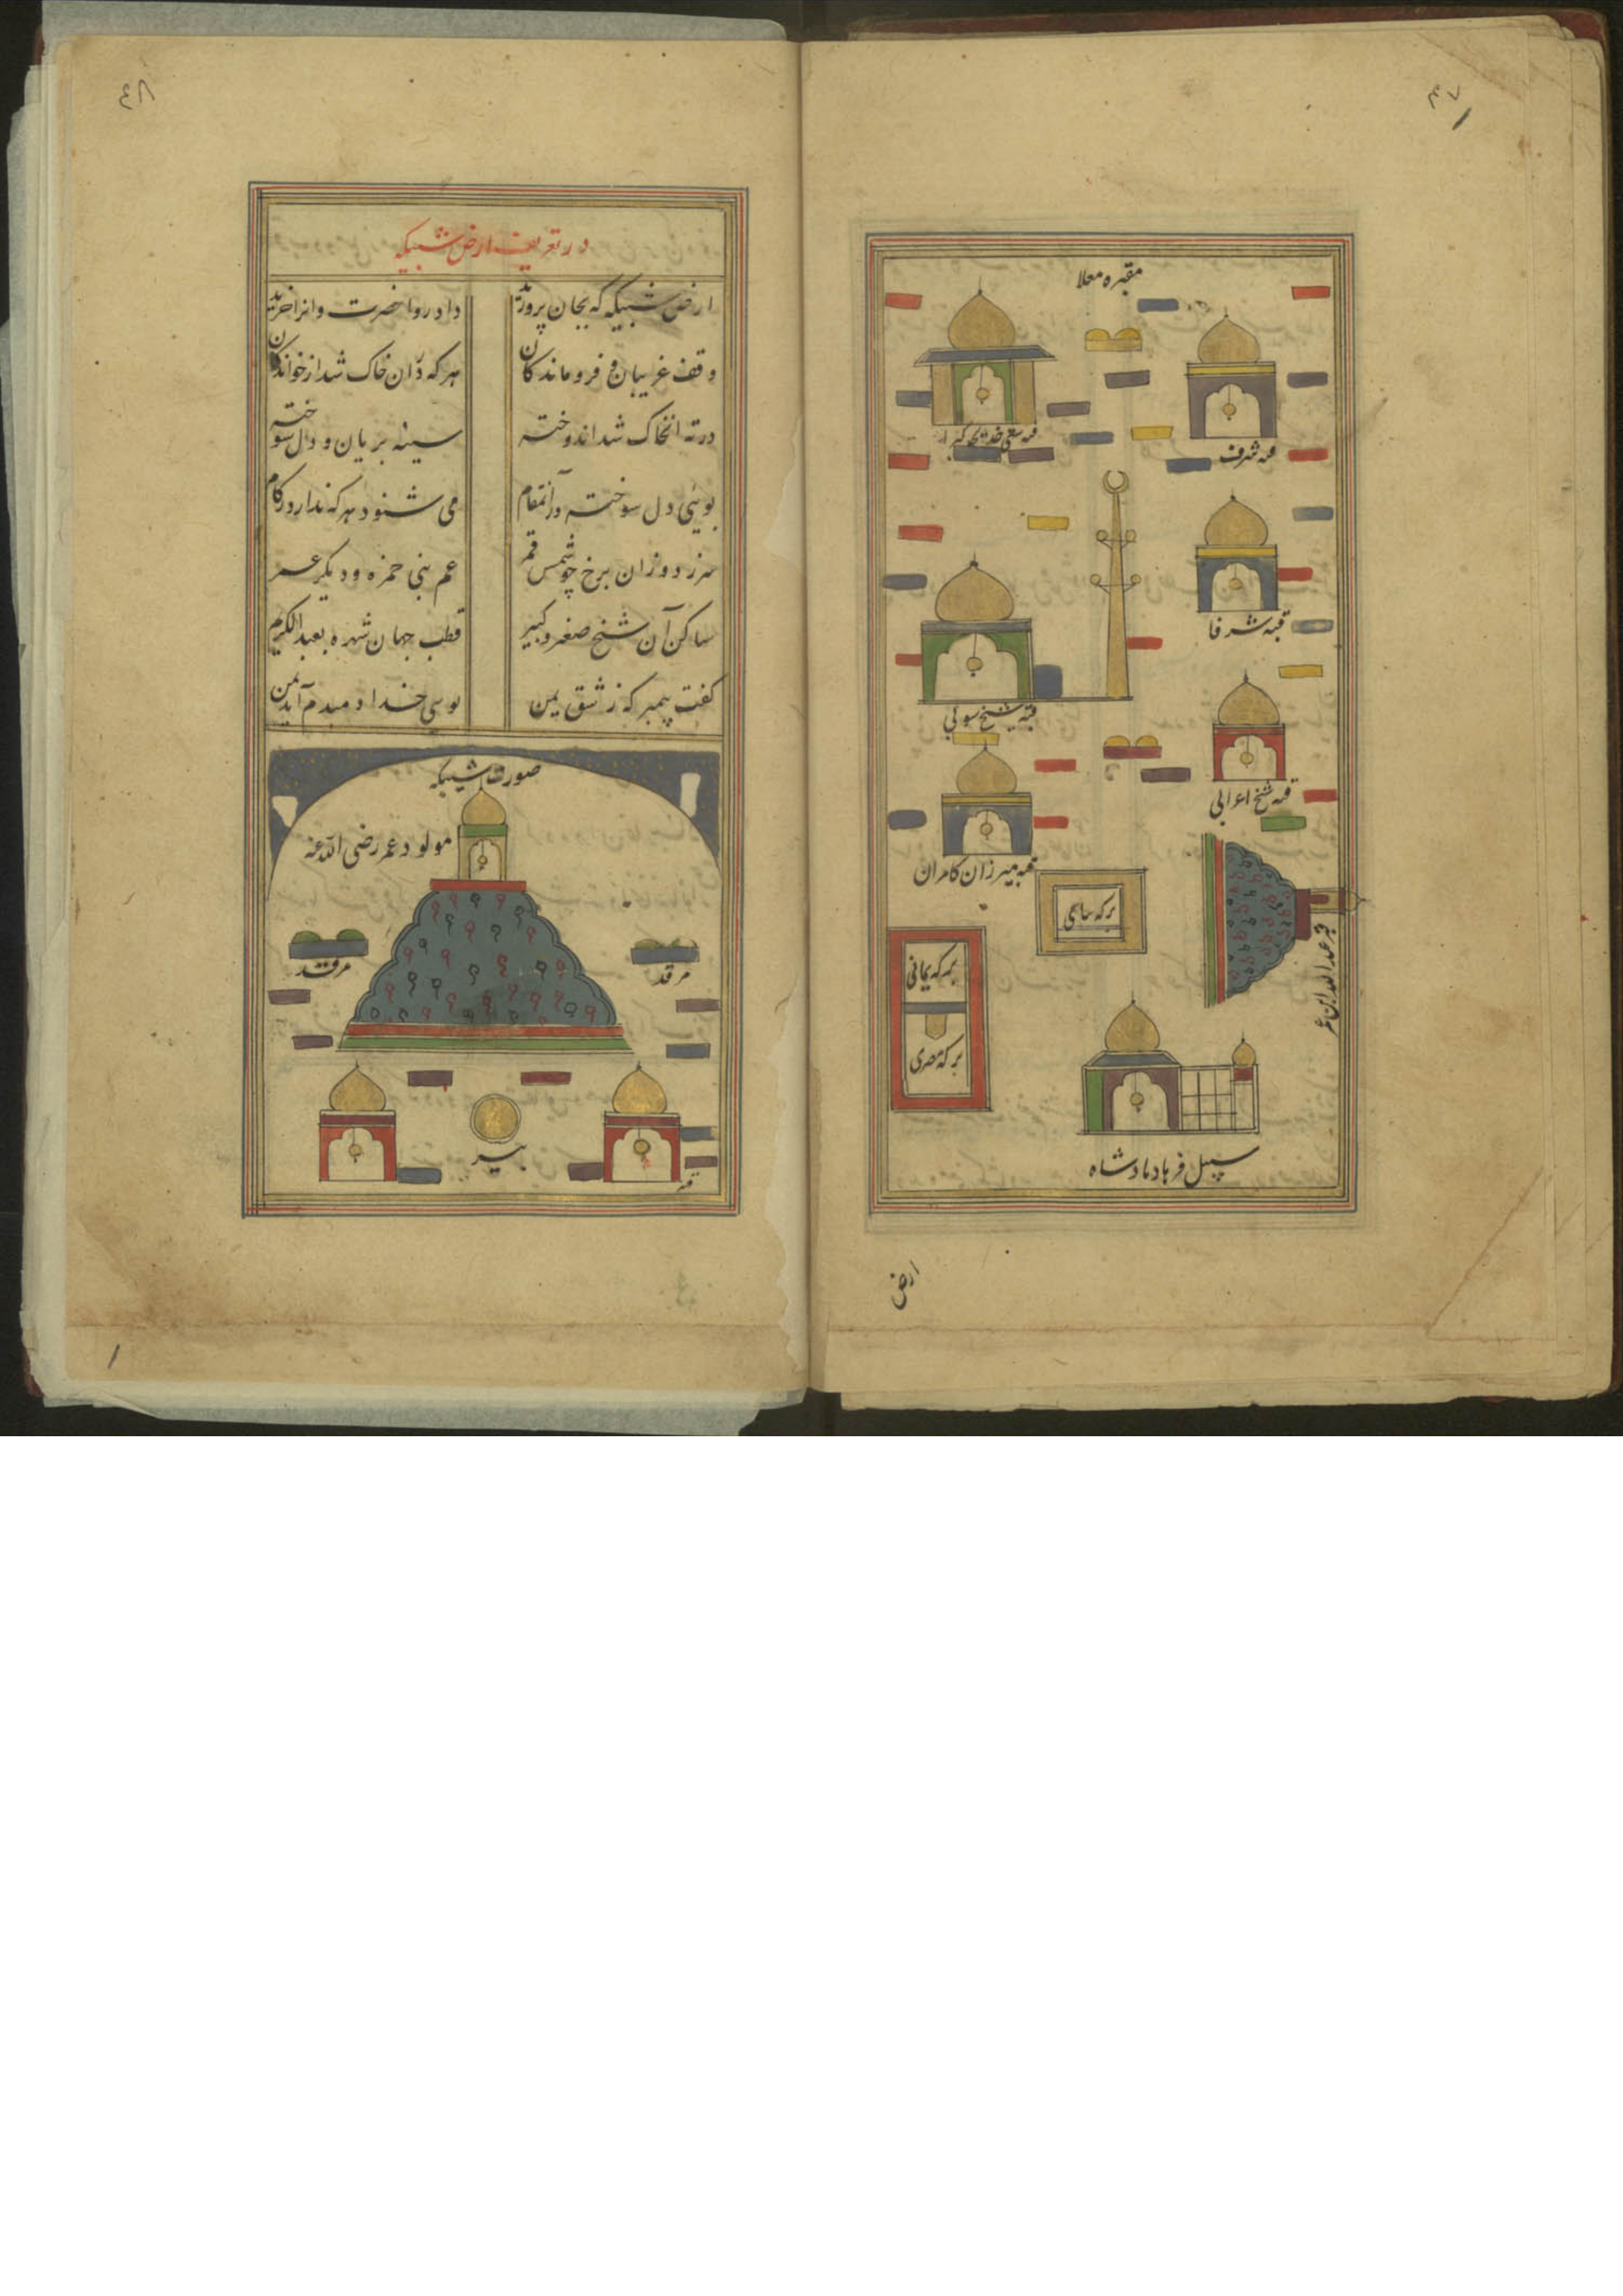 مقبره معلا
قبه شرف
قبه شرفا
قبه شیخ
قبه میرزان کامران
برکه
برکه یمانی
برکه مصری
قبر عبدالله ابن عمر
سبیل فرهاد پادشاه
ارض
۴۸
در تعریف ارض شبیکه
ارض شبیکه که بجان پرورید داد روا حضرت وانرا خرید
وقف غریبان و فروماندکان هر که در آن خاک شد از خواندکان
در ته آنخاک شد اندوخته سینه بریان و دل سوخته
بوئی دل سوخته در آنمقام می شنود هر که ندارد زکام
سر زد و زان برخ چو شمس و قمر عم نبی حمزه و دیکر عمر
ساکن آن شیخ صغیر و کبیر قطب جهان شهره بعبدالکریم
کفت پیمبر که ز شق یمن بوی خدا دمبدم آید بمن
صورت شبیکه
مولود عمر رضی الله عنه
مرقد
مرقد
بیر
قبه